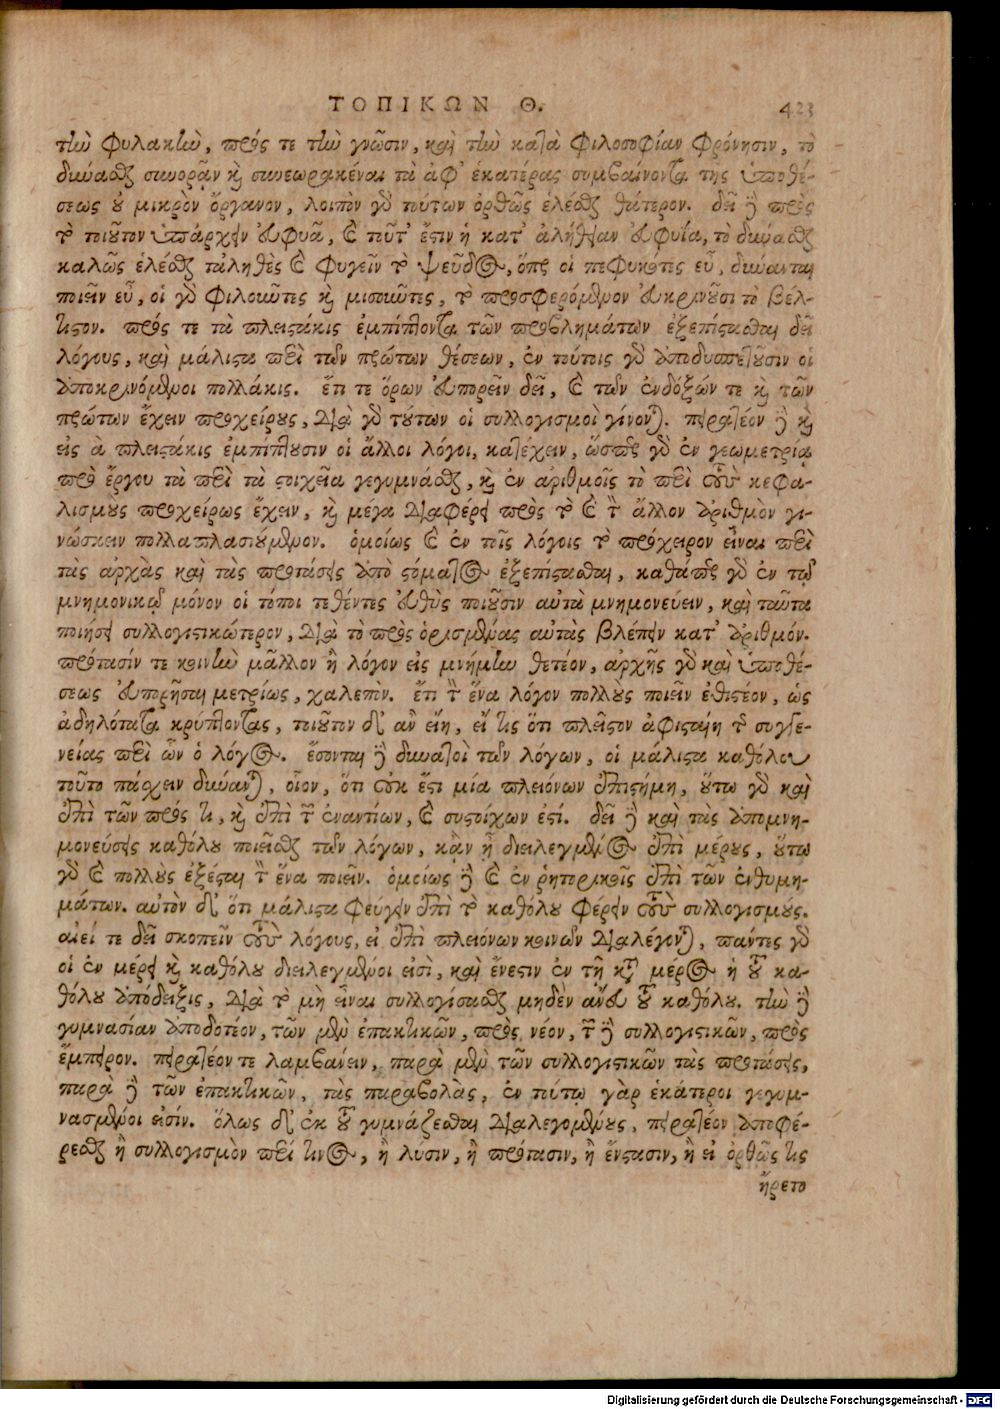 ΤΟΠΙΚΩΝ Θ. 423
τὴν φυλακὴν, πρός τε τὴν γνῶσιν, καὶ τὴν κατὰ φιλοσοφίαν φρόνησιν, τὸ
δύνασθαι συνορᾷν καὶ συνεωρακέναι τὰ ἀφ' ἑκατέρας συμβαίνοντα τῆς ὑποθέ-
σεως οὐ μικρὸν ὄργανον, λοιπὸν γὰρ τούτων ὀρθῶς ἑλέσθαι θάτερον. δεῖ δὲ πρὸς
τὸ τοιοῦτον ὑπάρχειν εὐφυᾶ, καὶ τοῦτ' ἔστιν ἡ κατ' ἀλήθειαν εὐφυΐα, τὸ δύνασθαι
καλῶς ἑλέσθαι τἀληθὲς καὶ φυγεῖν τὸ ψεῦδος, ὅπερ οἱ πεφυκότες εὖ, δύνανται
ποιεῖν εὖ, οἱ γὰρ φιλοῦντες καὶ μισοῦντες, τὸ προσφερόμενον εὐκρινοῦσι τὸ βέλ-
τιστον. πρός τε τὰ πλειστάκις ἐμπίπτοντα τῶν προβλημάτων ἐξεπίστασθαι δεῖ
λόγους, καὶ μάλιστα περὶ τῶν πρώτων θέσεων, ἐν τούτοις γὰρ ἀποδυσπετοῦσιν οἱ
ἀποκρινόμενοι πολλάκις. ἔτι τε ὅρων εὐπορεῖν δεῖ, καὶ τῶν ἐνδόξων τε καὶ τῶν
πρώτων ἔχειν προχείρους, διὰ γὰρ τούτων οἱ συλλογισμοὶ γίνονται. πειρατέον δὲ καὶ
εἰς ἃ πλειστάκις ἐμπίπτουσιν οἱ ἄλλοι λόγοι, κατέχειν, ὥσπερ γὰρ ἐν γεωμετρίᾳ
πρὸ ἔργου τὸ περὶ τὰ στοιχεῖα γεγυμνάσθαι, καὶ ἐν ἀριθμοῖς τὸ περὶ τοὺς κεφα-
λισμοὺς προχείρως ἔχειν, καὶ μέγα διαφέρει πρὸς τὸ καὶ τὸν ἄλλον ἀριθμὸν γι-
νώσκειν πολλαπλασιούμενον. ὁμοίως καὶ ἐν τοῖς λόγοις τὸ πρόχειρον εἶναι περὶ
τὰς ἀρχὰς καὶ τὰς προτάσεις ἀπὸ στόματος ἐξεπίστασθαι, καθάπερ γὰρ ἐν τῷ
μνημονικῷ μόνον οἱ τόποι τεθέντες εὐθὺς ποιοῦσιν αὐτὰ μνημονεύειν, καὶ ταῦτα
ποιήσει συλλογιστικώτερον, διὰ τὸ πρὸς ὁρισμένας αὐτὰς βλέπειν κατ' ἀριθμόν.
πρότασίν τε κοινὴν μᾶλλον ἢ λόγον εἰς μνήμην θετέον, ἀρχῆς γὰρ καὶ ὑποθέ-
σεως εὐπορῆσαι μετρίως, χαλεπόν. ἔτι τὸν ἕνα λόγον πολλοὺς ποιεῖν ἐθιστέον, ὡς
ἀδηλότατα κρύπτοντας, τοιοῦτον δ' ἂν εἴη, εἴ τις ὅτι πλεῖστον ἀφισταίη τῆς συγγε-
νείας περὶ ὧν ὁ λόγος. ἔσονται δὲ δυνατοὶ τῶν λόγων, οἱ μάλιστα καθόλου
τοῦτο πάσχειν δύνανται, οἷον, ὅτι οὐκ ἔστι μία πλειόνων ἐπιστήμη, οὕτω γὰρ καὶ
ἐπὶ τῶν πρός τι, καὶ ἐπὶ τῶν ἐναντίων, καὶ συστοίχων ἐστί. δεῖ δὲ καὶ τὰς ἀπομνη-
μονεύσεις καθόλου ποιεῖσθαι τῶν λόγων, κἂν ᾖ διειλεγμένος ἐπὶ μέρους, οὕτω
γὰρ καὶ πολλοὺς ἐξέσται τὸν ἕνα ποιεῖν. ὁμοίως δὲ καὶ ἐν ῥητορικοῖς ἐπὶ τῶν ἐνθυμη-
μάτων. αὐτὸν δ' ὅτι μάλιστα φεύγειν ἐπὶ τὸ καθόλου φέρειν τοὺς συλλογισμούς.
αἰεί τε δεῖ σκοπεῖν τοὺς λόγους, εἰ ἐπὶ πλειόνων κοινῶν διαλέγονται, πάντες γὰρ
οἱ ἐν μέρει καὶ καθόλου διειλεγμένοι εἰσὶ, καὶ ἔνεστιν ἐν τῇ κατὰ μέρος ἡ τοῦ κα-
θόλου ἀπόδειξις, διὰ τὸ μὴ εἶναι συλλογίσασθαι μηδὲν ἄνευ τοῦ καθόλου. τὴν δὲ
γυμνασίαν ἀποδοτέον, τῶν μὲν ἐπακτικῶν, πρὸς νέον, τῶν δὲ συλλογιστικῶν, πρὸς
ἔμπειρον. πειρατέον τε λαμβάνειν, παρὰ μὲν τῶν συλλογιστικῶν τὰς προτάσεις,
παρὰ δὲ τῶν ἐπακτικῶν, τὰς παραβολὰς, ἐν τούτῳ γὰρ ἑκάτεροι γεγυμ-
νασμένοι εἰσίν. ὅλως δ' ἐκ τοῦ γυμνάζεσθαι διαλεγομένους, πειρατέον ἀποφέ-
ρεσθαι ἢ συλλογισμὸν περί τινος, ἢ λύσιν, ἢ πρότασιν, ἢ ἔνστασιν, ἢ εἰ ὀρθῶς τις
ἤρετο
Digitalisierung gefördert durch die Deutsche Forschungsgemeinschaft - DFG